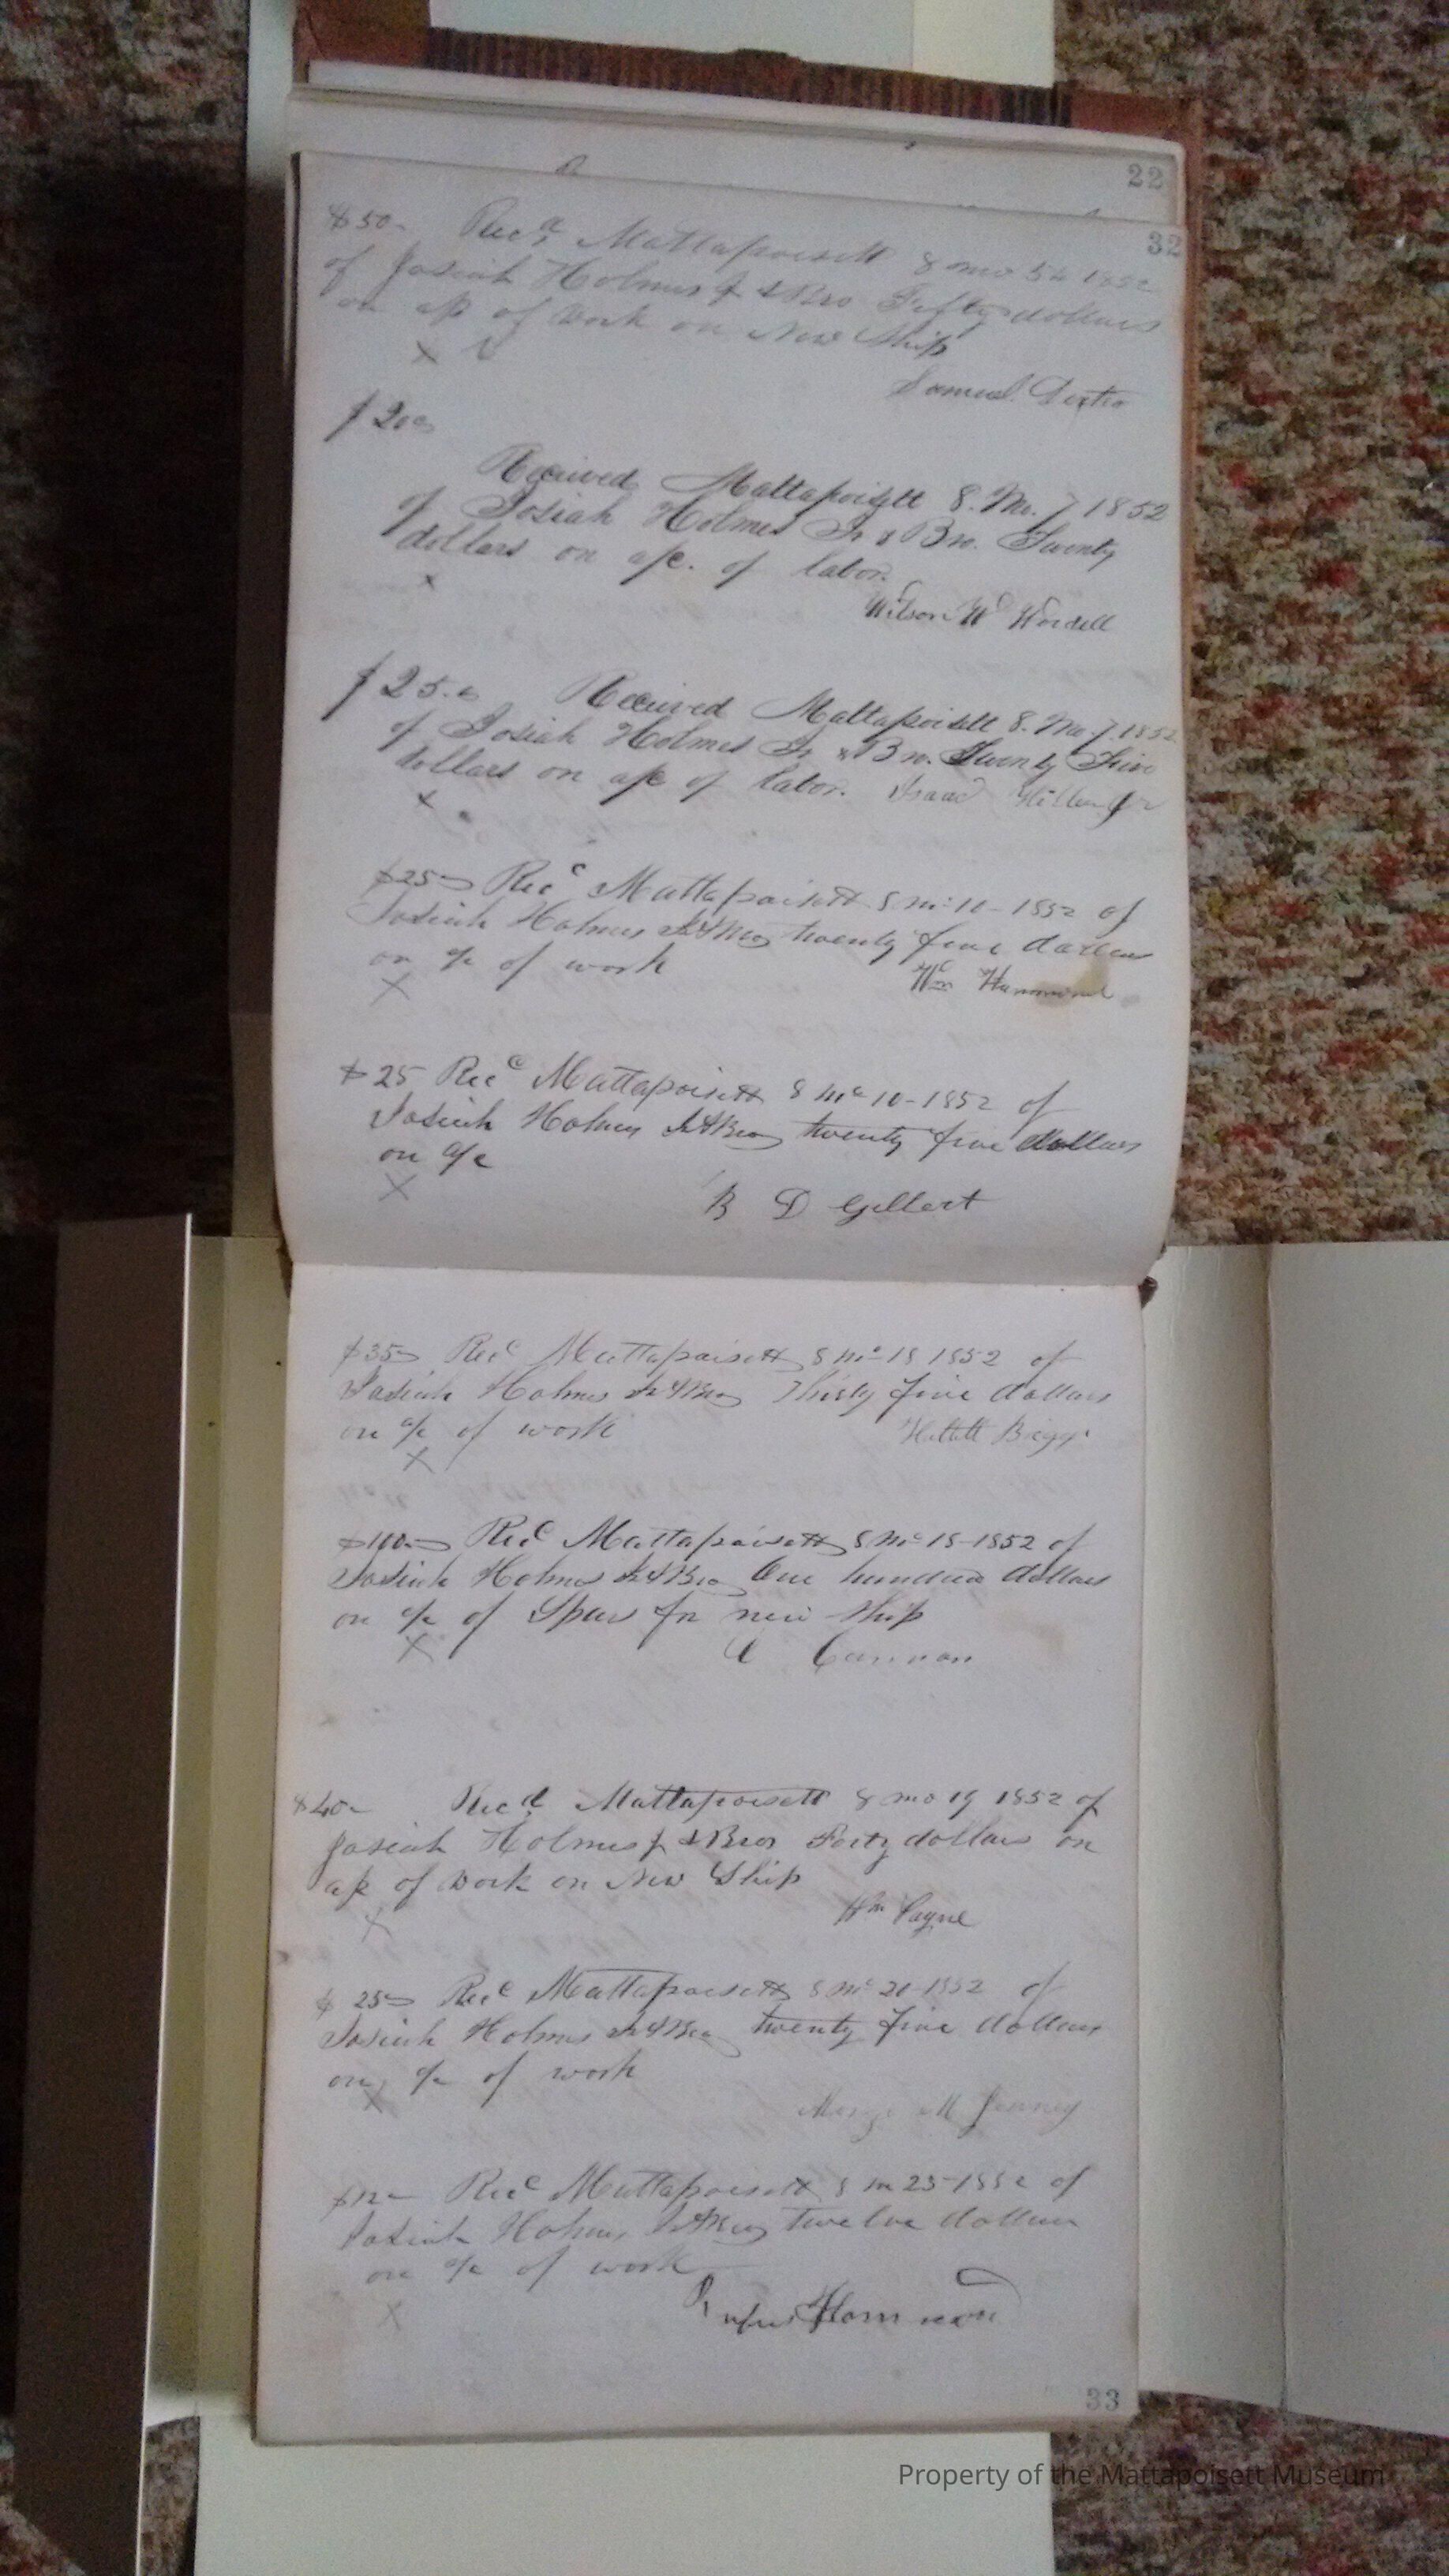 22
32
$50- Recd Mattapoisett 8 mo 5th 1852
of Josiah Holmes Jr & Bro Fifty dollars
on a/c of Work on New Ship
x
Samuel Dexter
$20.
Received Mattapoisett 8. Mo. 7 1852
of Josiah Holmes Jr & Bro. Twenty
dollars on a/c. of labor.
x
Wilson W Wordell
$25. Received Mattapoisett 8. Mo 7. 1852
of Josiah Holmes Jr & Bro. Twenty Five
dollars on a/c of labor. Isaac Jr
x
$25 Rec Mattapoisett 8 mo 10-1852 of
Josiah Holmes Jr & Bro twenty five dollars
on a/c of work
Wm Hammond
x
$25 Rec Mattapoisett 8 mo 10-1852 of
Josiah Holmes Jr & Bro twenty five dollars
on a/c
x
B D Gellert
$35 Rec Mattapoisett 8 mo 18 1852 of
Josiah Holmes Jr & Bro Thirty five dollars
on a/c of work Briggs
x
$100 Rec Mattapoisett 8 mo 18-1852 of
Josiah Holmes Jr & Bro One hundred dollars
on a/c of Spars for new Ship
x
C Cannon
$40- Recd Mattapoisett 8 mo 19 1852 of
Josiah Holmes Jr & Bro Forty dollars on
a/c of Work on New Ship
Wm Payne
x
$25 Rec Mattapoisett 8 mo 20-1852 of
Josiah Holmes Jr & Bro twenty five dollars
on a/c of work
x
M Jenney
$12- Rec Mattapoisett 8 m 23-1852 of
Josiah Holmes Jr & Bro twelve dollars
on a/c of work
x
Rufus Hammond
33
Property of the Mattapoisett Museum